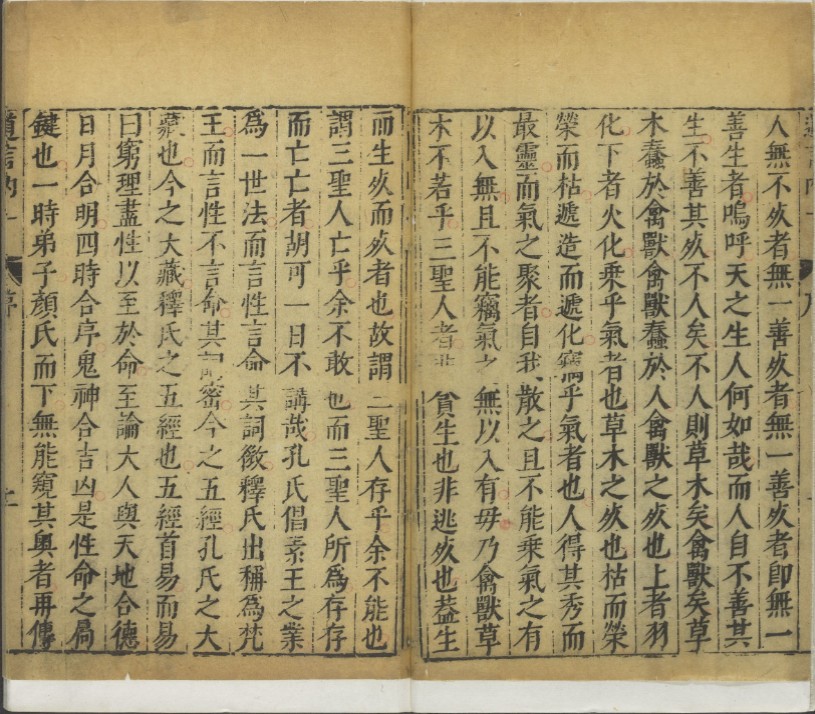 人無不死者無一善死者無一善死者即無一
善生者嗚呼天之生人何如哉而人自不善其
生不善其死不人矣不人則草木矣禽獸矣草
木蠢於禽獸禽獸蠢於人禽獸之死也上者羽
化下者火化乘乎氣者也草木之死也枯而榮
榮而枯遞造而遞化竊乎氣者也人得其秀而
最靈而氣之聚者自我散之且不能乘氣之有
以入無且不能竊氣之無以入有毋乃禽獸草
木不若乎三聖人者非貪生也非逃死也葢生
而生死而死者也故謂三聖人存乎余不能也
謂三聖人亡乎余不敢也而三聖人所為存存
而亡亡者胡可一日不講哉孔氏倡素王之業
為一世法而言性言命其詞微釋氏出稱為梵
王而言性不言命其詞密今之五經孔氏之大
藏也今之大藏釋氏之五經也五經首易而易
曰窮理盡性以至於命至論大人與天地合德
日月合明四時合序鬼神合吉凶是性命之扃
鍵也一時弟子顏氏而下無能窺其奧者再傳
道言內一 序